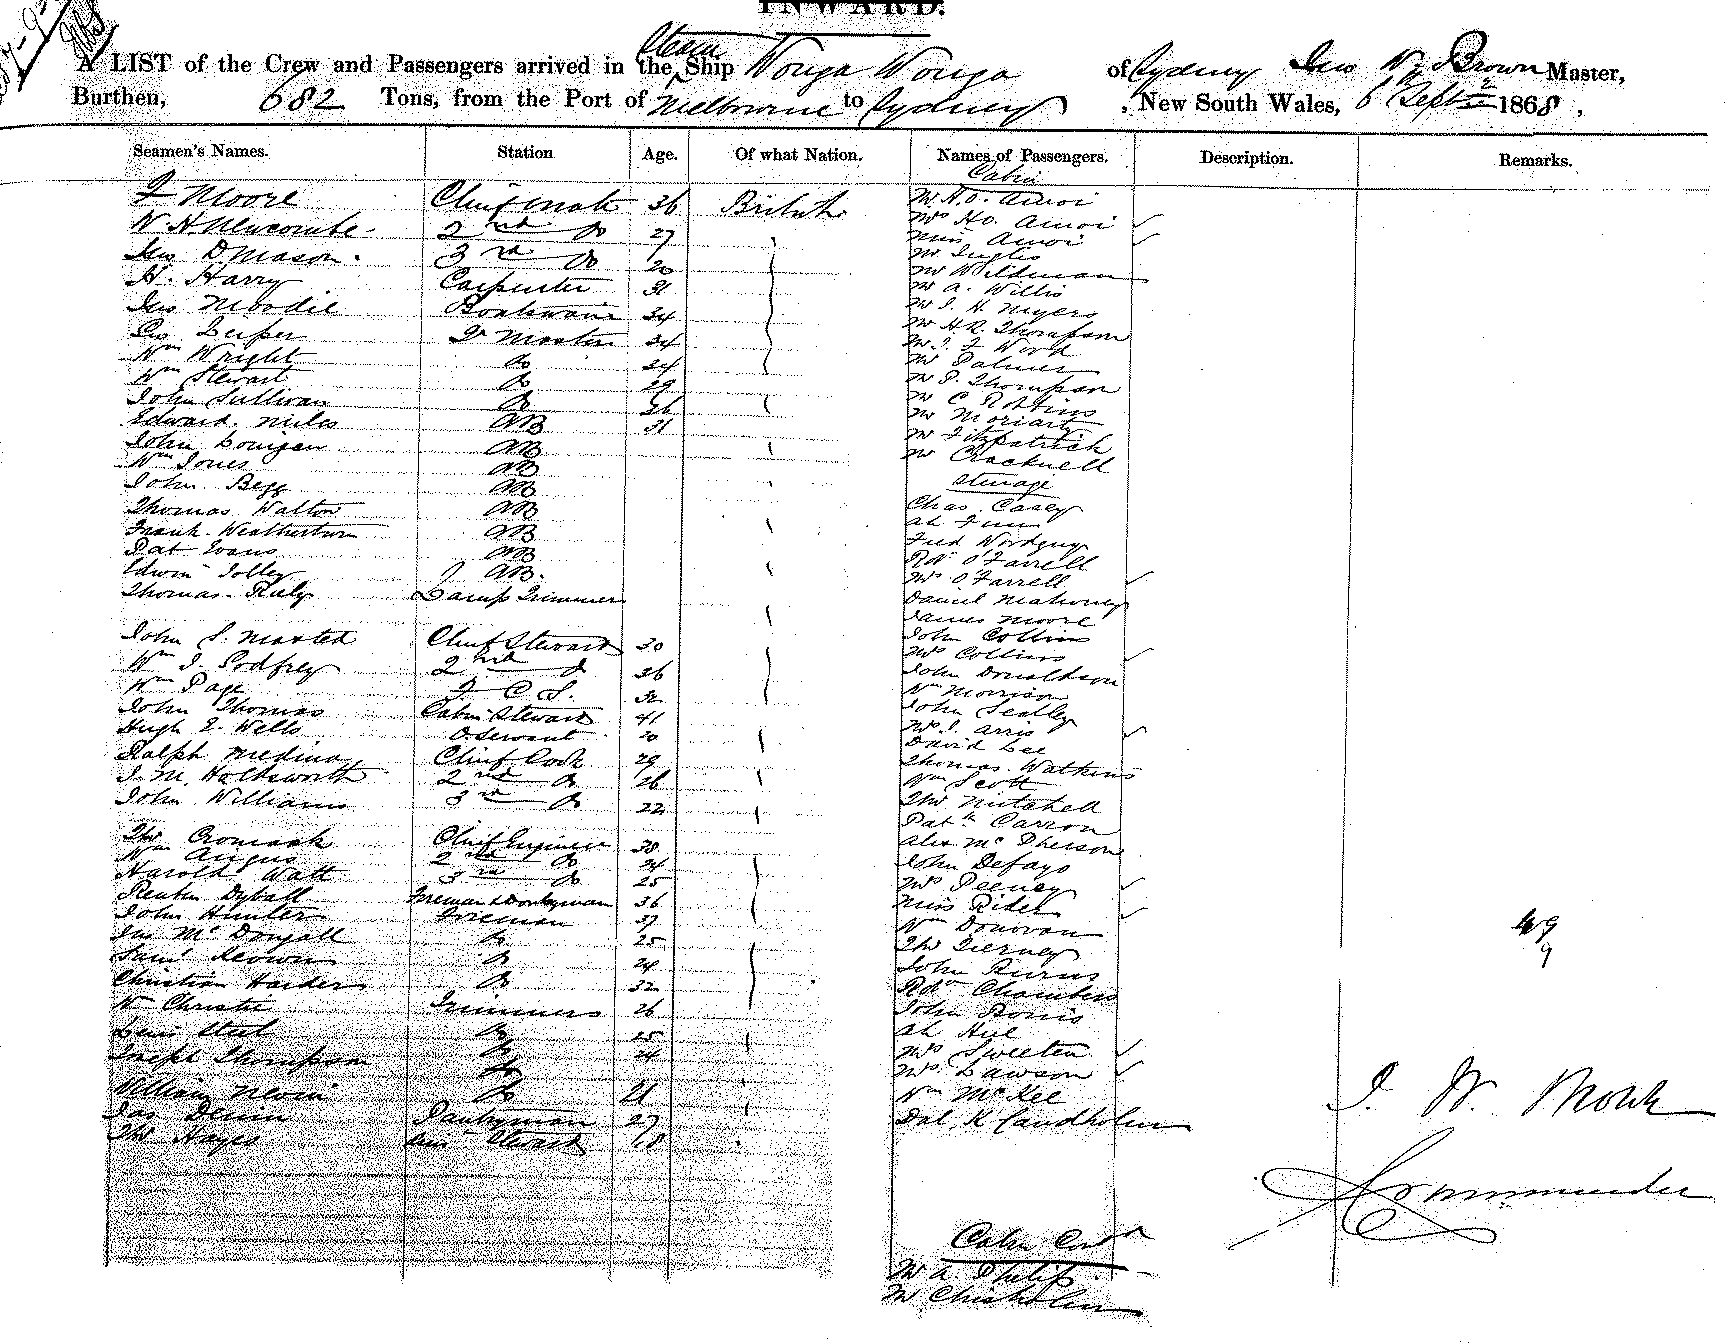 INWARD.
A LIST of the Crew and Passengers arrived in the Steam Ship Wonga Wonga of Sydney Jno W. Brown Master,
Burthen, 682 Tons, from the Port of Melbourne to Sydney, New South Wales, 6th Septr 1868,
Seamen's Names. Station Age. Of what Nation. Names of Passengers. Description. Remarks.
Cabin
Moore Chief Mate 36 British
W. H Newcombe 2nd Do 27
Jas D Mason 3rd Do 20
H. Harry Carpenter 31
Jas Moodie Boatswain 34
Qr Master 24
Wm Wright Do 24
Wm Stewart Do 29
John Sullivan Do 36
Edward Miles AB 31
John AB
Wm Jones AB
John Begg AB
Thomas Walton AB
Frank Weatherton AB
Pat Evans AB
Edwin Jolley AB.
Thomas Lamp Trimmer
John S. Chief Steward 30
Wm J. Godfrey 2nd Do 26
Wm Page F C S. 32
John Thomas Cabin Steward 41
Hugh E. Wells O. Servant 20
Ralph Medina Chief Cook 29
J. M. Holdsworth 2nd Do 26
John Williams 3rd Do 22
Thos Cromack Chief Engineer 38
Wm Angus 2nd Do 24
Harold Watt 3rd Do 25
Reuben Dyball Fireman & Donkeyman 36
John Hunter Fireman 37
Jas McDougall Do 25
Saml Do 24
Christian Harders Do 32
Wm Christie Trimmers 26
Do 25
Joseph Thompson Do 24
William Nevin Do 21
Jas Devin Donkeyman 27
Thos Hayes Steward 18
Mr H.O. Amoi
Mrs H.O. Amoi
Miss Amoi
Mr Inglis
Mr Wildman
Mr A. Willis
Mr J. H. Myers
Mr H.R. Thompson
Mr J. F Word
Mr Palmer
Mr P. Thompson
Mr C Robbins
Mr Moriart
Mr Fitzpatrick
Mr Cracknell
Steerage
Chas. Casey
Ah
Fred
Rd O'Farrell
Mrs O'Farrell
Daniel Mahoney
James Moore
John Collins
Mrs Collins
John Donaldson
Wm Morrison
John
Mrs J. Arris
David Lee
Thomas Watkins
Wm Scott
Thos Mitchell
Patk Carron
Alex McPherson
John Defayo
Mrs Peeney
Miss Rider
Wm Donovan
Thos Tierney
John Burns
Rd Chambers
John Bonis
Ah Hue
Mrs Sweeten
Mrs Lawson
Wm McKee
49
9
J. W. Brown
Commander
Cabin
Mr A. Philip
Mr Chisholm